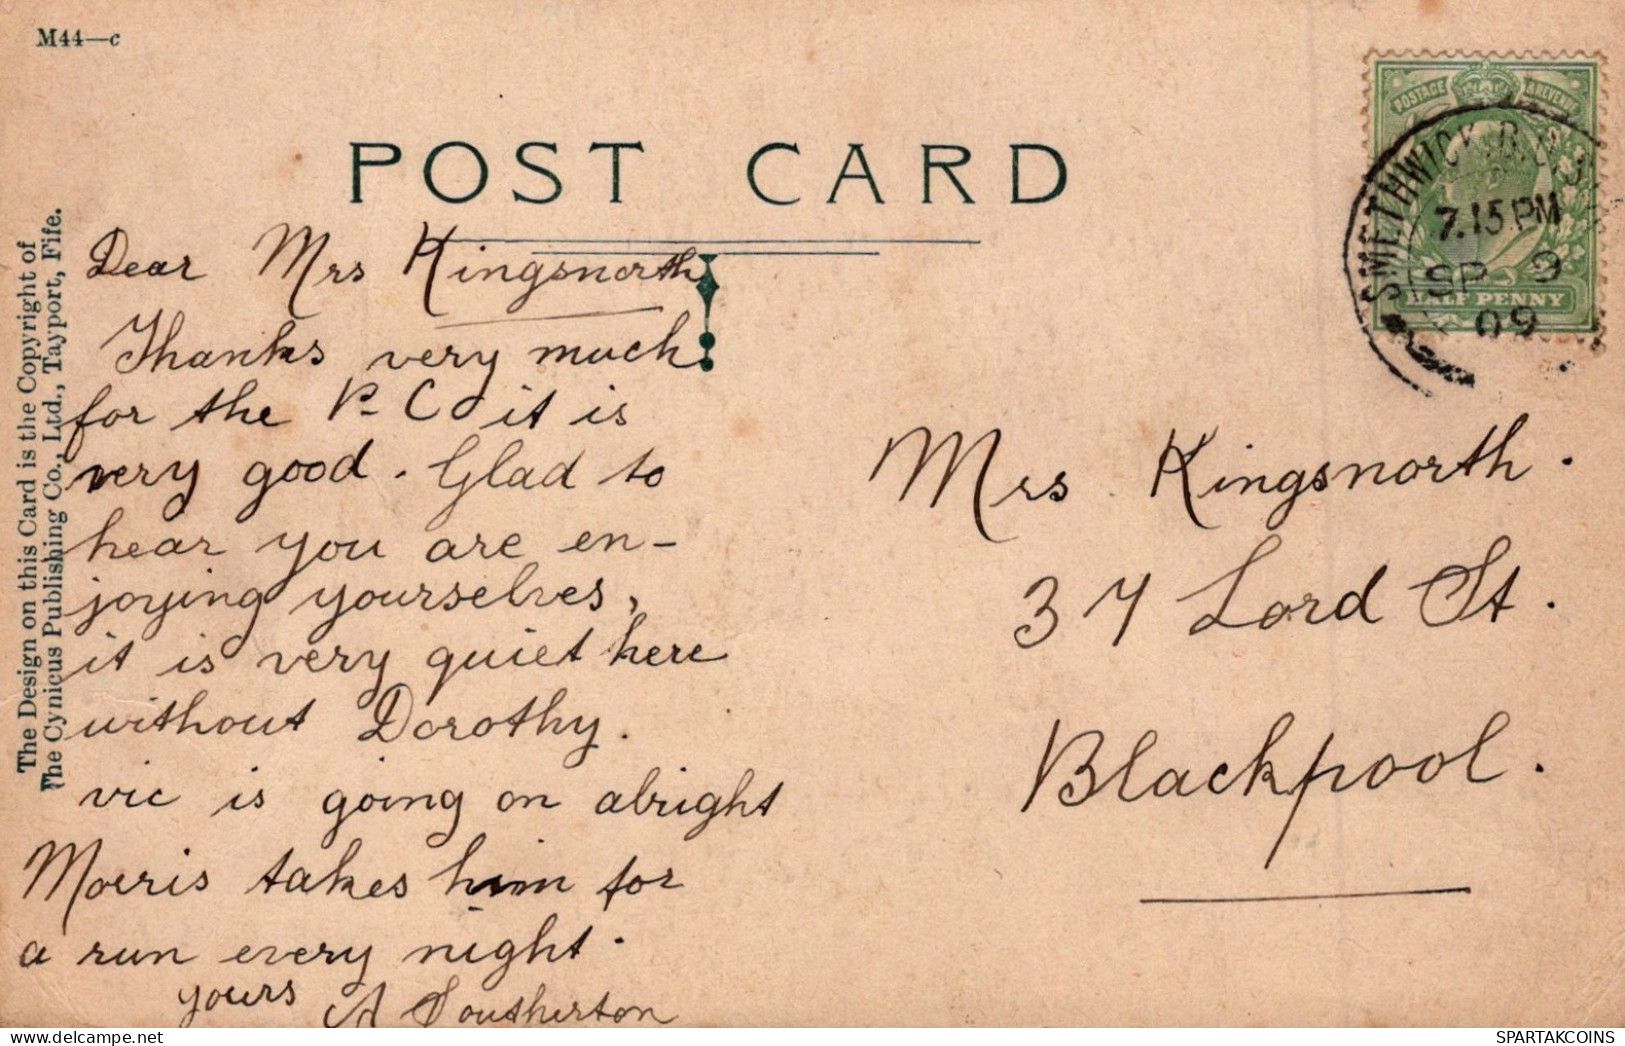 M44—c
POST CARD
The Design on this Card is the Copyright of
The Cynicus Publishing Co., Ltd., Tayport, Fife.
Dear Mrs Kingsnorth
Thanks very much
for the P-C it is
very good. Glad to
hear you are en-
joying yourselves,
it is very quiet here
without Dorothy.
vic is going on alright
Morris takes him for
a run every night.
yours A Southerton
POSTAGE & REVENUE
HALF PENNY
SMETHWICK.B.O
7.15 PM
SP 9
09
Mrs Kingsnorth.
37 Lord St.
Blackpool.
https://www.delcampe.net
SPARTAKCOINS